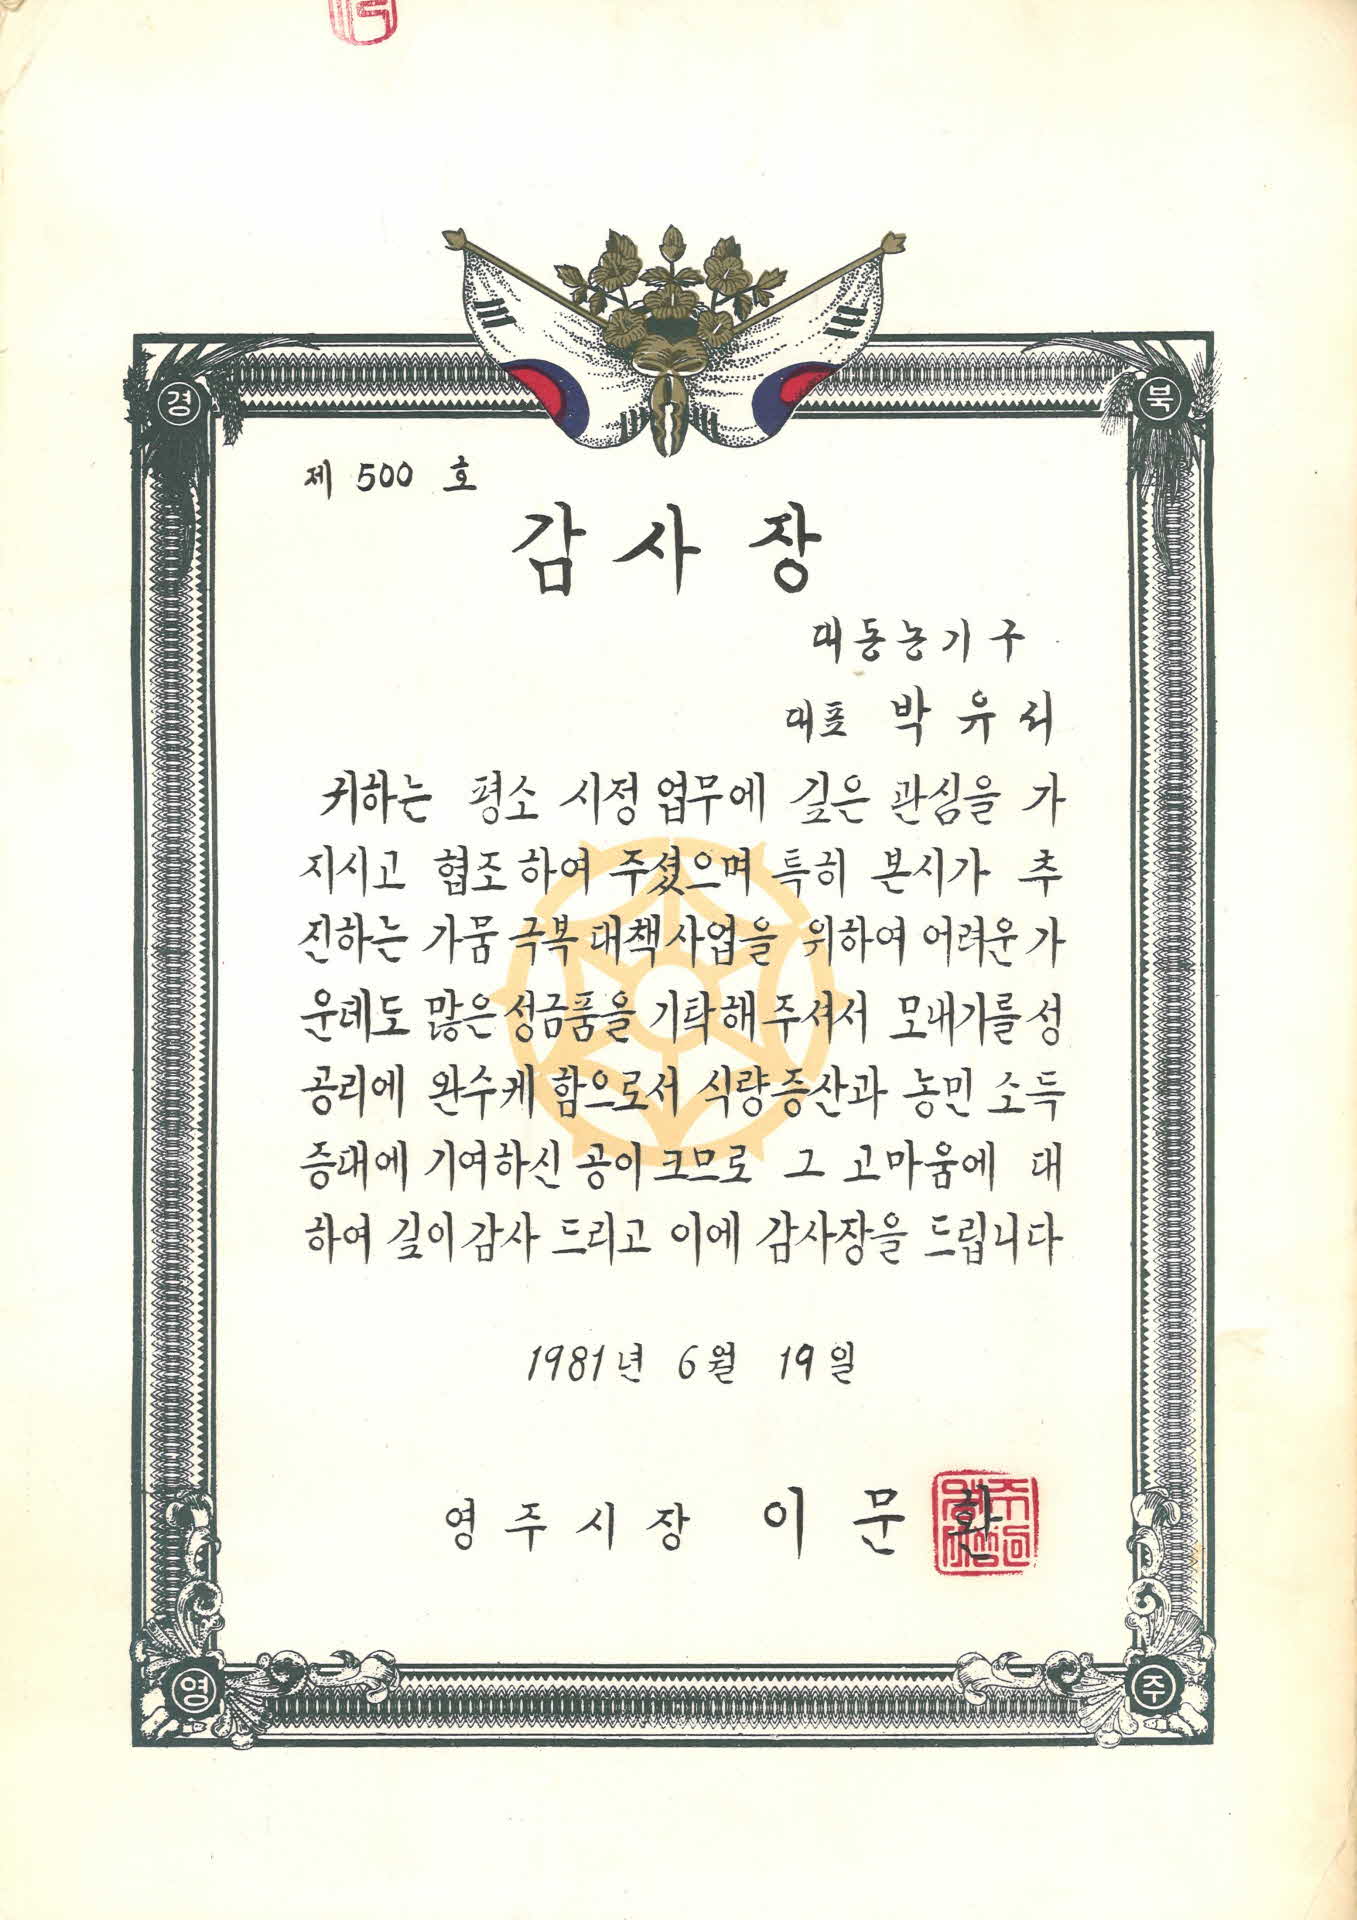 경 북
제 500 호
감사장
대동농기구
대표 박유서
귀하는 평소 시정 업무에 깊은 관심을 가
지시고 협조하여 주셨으며 특히 본시가 추
진하는 가뭄 극복대책사업을 위하여 어려운 가
운데도 많은 성금품을 기탁해주셔서 모내기를 성
공리에 완수케 함으로서 식량증산과 농민 소득
증대에 기여하신 공이 크므로 그 고마움에 대
하여 깊이 감사 드리고 이에 감사장을 드립니다
1981년 6월 19일
영주시장 이문환
영 주